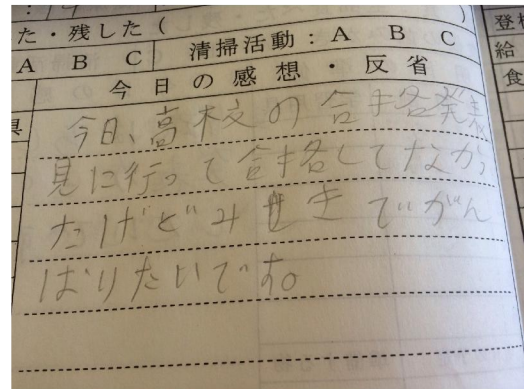 た・残した(
)
登
A B C
清掃活動：A B C
給
食
今日の感想・反省
今日、高校の合格発表
見に行って合格してなかっ
たけどみせきでがん
ばりたいです。